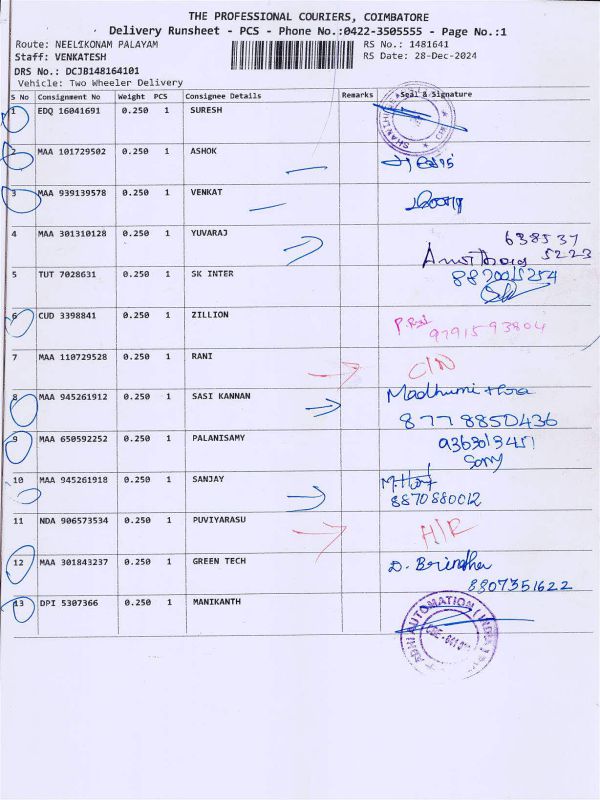 THE PROFESSIONAL COURIERS, COIMBATORE
Delivery Runsheet - PCS - Phone No.:0422-3505555 - Page No.:1
Route: NEELIKONAM PALAYAM RS No.: 1481641
Staff: VENKATESH RS Date: 28-Dec-2024
DRS No.: DCJB148164101
Vehicle: Two Wheeler Delivery
S No Consignment No Weight PCS Consignee Details Remarks Seal & Signature
1 EDQ 16041691 0.250 1 SURESH
2 MAA 101729502 0.250 1 ASHOK
3 MAA 939139578 0.250 1 VENKAT
4 MAA 301310128 0.250 1 YUVARAJ 638537
5223
5 TUT 7028631 0.250 1 SK INTER 8870015254
6 CUD 3398841 0.250 1 ZILLION 9791593804
7 MAA 110729528 0.250 1 RANI C/N
8 MAA 945261912 0.250 1 SASI KANNAN
8778850436
9 MAA 650592252 0.250 1 PALANISAMY 9363013451
Sony
10 MAA 945261918 0.250 1 SANJAY
8870880012
11 NDA 906573534 0.250 1 PUVIYARASU H/R
12 MAA 301843237 0.250 1 GREEN TECH D. Brindha
8807351622
13 DPI 5307366 0.250 1 MANIKANTH